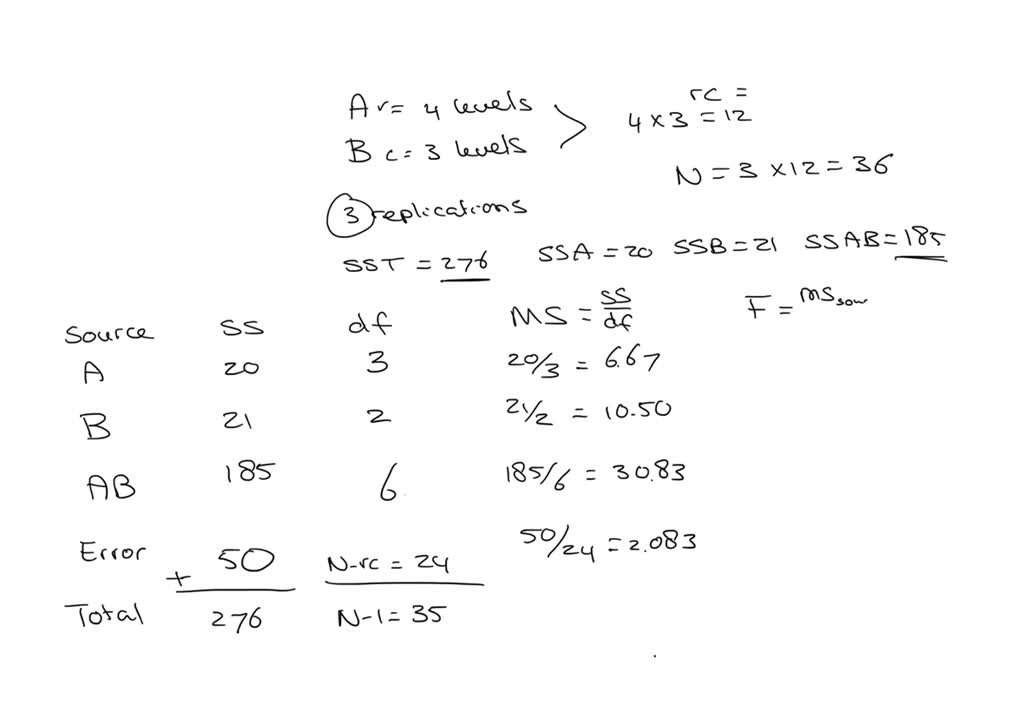 A r= 4 levels
B c= 3 levels
rc =
4 x 3 = 12
N = 3 x 12 = 36
3 replications
SST = 276 SSA = 20 SSB = 21 SSAB = 185
Source SS df MS = SS/df F = MS
A 20 3 20/3 = 6.67
B 21 2 21/2 = 10.50
AB 185 6 185/6 = 30.83
Error + 50 N-rc = 24 50/24 = 2.083
Total 276 N-1 = 35